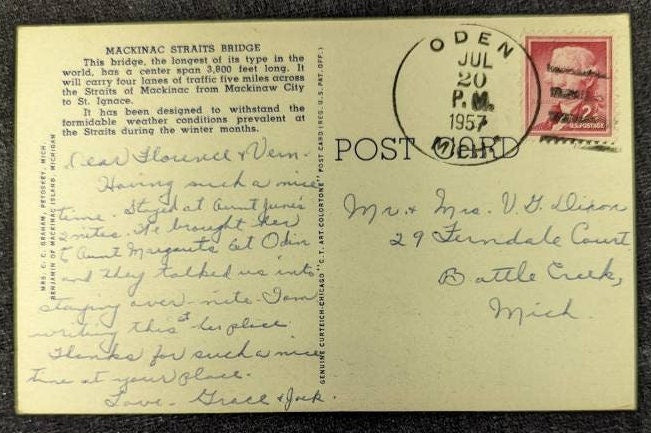 MACKINAC STRAITS BRIDGE
This bridge, the longest of its type in the
world, has a center span 3,800 feet long. It
will carry four lanes of traffic five miles across
the Straits of Mackinac from Mackinaw City
to St. Ignace.
It has been designed to withstand the
formidable weather conditions prevalent at
the Straits during the winter months.
Dear Florence & Vern -
Having such a nice
time. Stayed at Aunt June's
2 nites. We brought her
to Aunt Margaret's at Oden
and they talked us into
staying over-nite. I am
writing this at her place
Thanks for such a nice
time at your place.
Love - Grace & Jack.
MRS. C. C. GRAHAM, PETOSKEY, MICH.
BENJAMIN OF MACKINAC ISLAND, MICHIGAN
GENUINE CURTEICH-CHICAGO "C. T. ART-COLORTONE" POST CARD (REG. U. S. PAT. OFF.)
POST CARD
ODEN
JUL
20
P. M.
1957
2¢
U.S. POSTAGE
Mr. & Mrs. V. G. Dixon
29 Ferndale Court
Battle Creek,
Mich.